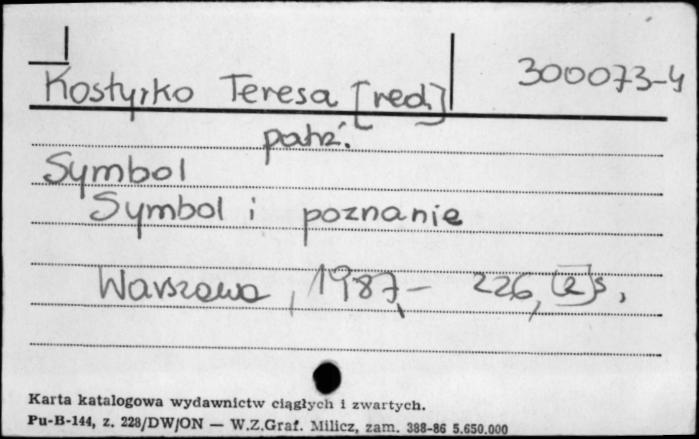 Kostyrko Teresa [red.] 300073-4
patrz:
Symbol
Symbol i poznanie
Warszawa, 1987, - 226, [2] s.
Karta katalogowa wydawnictw ciągłych i zwartych.
Pu-B-144, z. 228/DW/ON — W.Z.Graf. Milicz, zam. 388-86 5.650.000